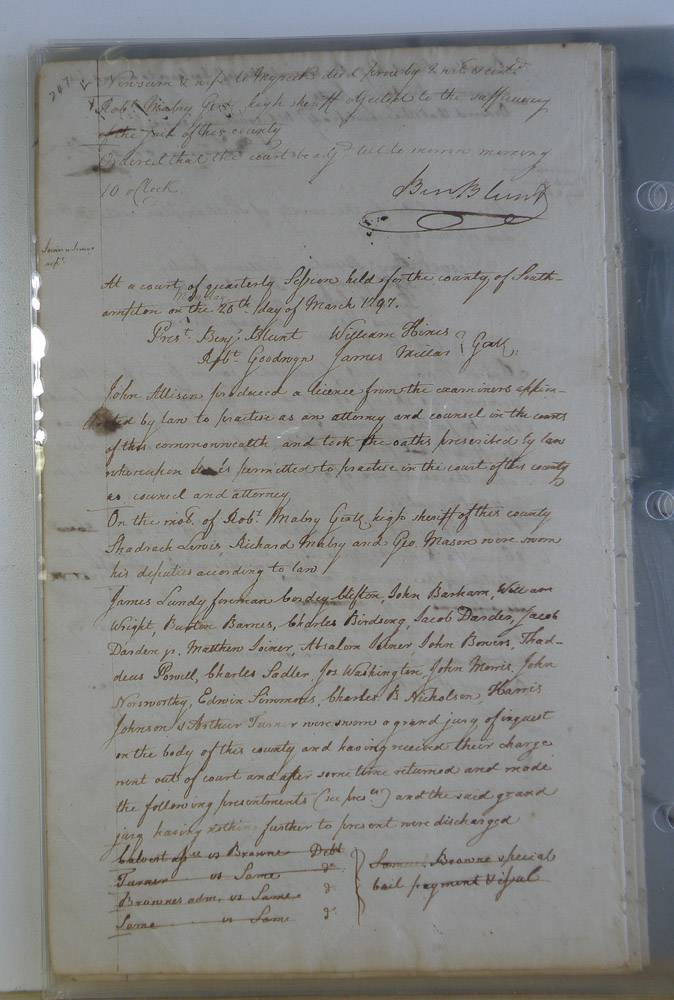 247
Newsum & wife to deed prov'd by
Rob.t Mabry Gent. high sheriff objected to the sufficiency
of the Jail of this county
Ordered that the court be adj.d till to morrow morning
10 o Clock
Ben Blunt
At a court of quarterly Session held for the county of South-
ampton on Monday the 20th day of March 1797.
Pres.t Benj.a Blunt William Hines
Rob.t Goodwyn James Millar } Gent.
John Allison produced a licence from the examiners appoin-
ted by law to practise as an attorney and counsel in the courts
of this commonwealth and took the oaths prescribed by law
whereupon he is permitted to practise in the court of this county
as council and attorney
On the mo.t of Rob.t Mabry Gent. high sheriff of this county
Shadrach Lewis Richard Mabry and Geo. Mason were sworn
his deputies according to law
James Lundy foreman Cordey Clifton, John Barham, William
Wright, Burton Barnes, Charles Birdsong, Jacob Darden, Jacob
Darden jr. Matthew Joiner, Absalom Joiner, John Bowers, Thad-
deus Powell, Charles Sadler, Jos Washington, John Morris, John
Norsworthy, Edwin Simmons, Charles B Nicholson, Harris
Johnson & Arthur Turner were sworn a grand jury of inquest
on the body of this county and having received their charge
went out of court and after some time returned and made
the following presentments (see pres.ts) and the said grand
jury having nothing further to present were discharged
Calvert vs Browne Debt
Turner vs Same do
Brownes adm. vs Same do
Same vs Same do
Browne special
bail payment & issue